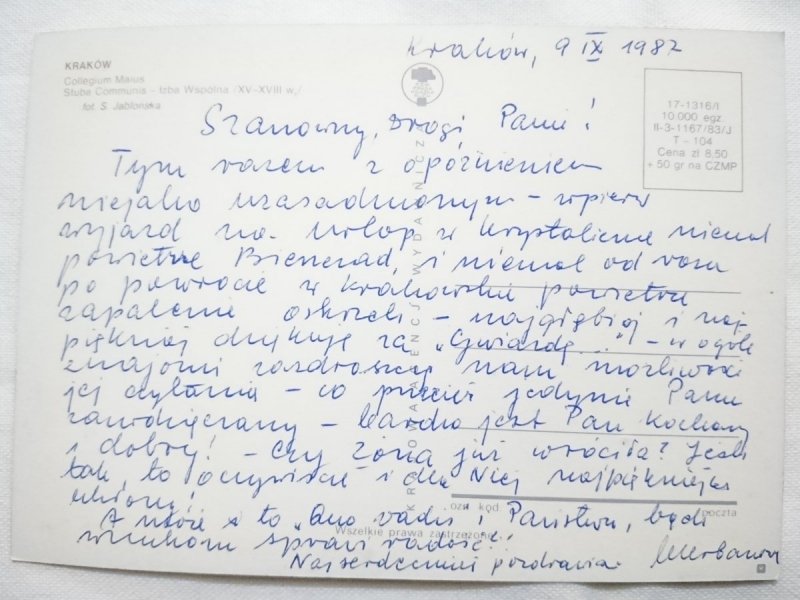 Kraków, 9 IX 1987
KRAKÓW
Collegium Maius
Stuba Communis - Izba Wspólna /XV-XVIII w./
fot. S. Jabłońska
17-1316/I
10.000 egz.
II-3-1167/83/J
T - 104
Cena zł 8,50
+ 50 gr na CZMP
Szanowny, Drogi Panie!
Tym razem z opóźnieniem
niejako uzasadnionym - wpierw
wyjazd na urlop w krystaliczne niemal
powietrze Bieszczad, i niemal od razu
po powrocie w krakowskie powietrze
zapalenie oskrzeli - najgłębiej i naj-
piękniej dziękuję za "Gwiazdę..." - w ogóle
znajomi zazdroszczą nam możliwości
jej czytania - co przecież jedynie Panu
zawdzięczamy - bardzo jest Pan Kochany
i dobry! - Czy żona już wróciła? Jeśli
tak, to oczywiście i dla Niej najpiękniejsze
ukłony!
A może to "Quo vadis" Państwu, bądź
wnukom sprawi radość!
Najserdeczniej pozdrawia
KRAJOWA AGENCJA WYDAWNICZA
ozn. kod.
poczta
Wszelkie prawa zastrzeżone